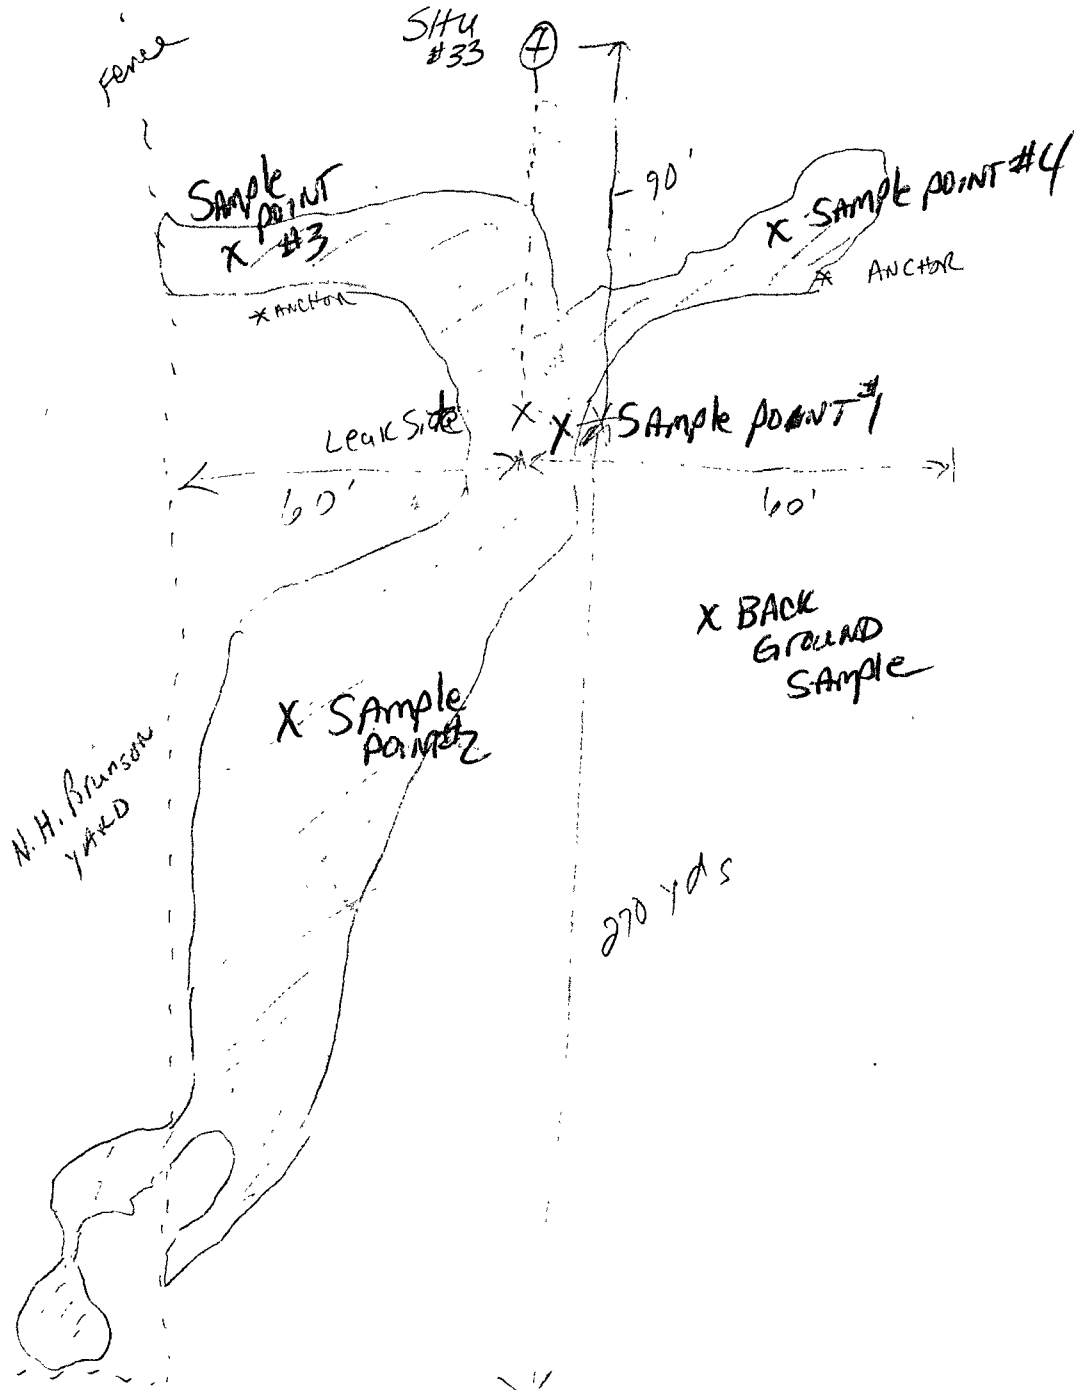 Fence
SHU
#33
90'
Sample
POINT
X #3
X Sample POINT #4
X ANCHOR
X ANCHOR
Leak Side
X
X
Sample POINT #1
60'
60'
X BACK
GROUND
SAmple
X SAmple
POINT #2
N.H. Brunson
YARD
270 yds